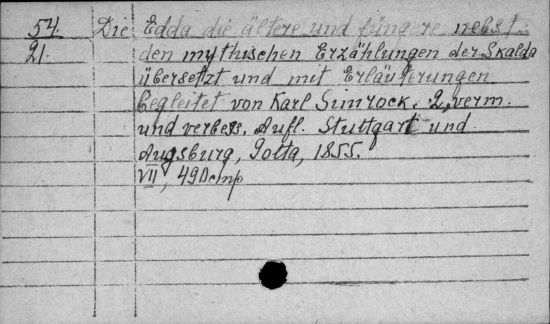 54. Die Edda die ältere und jüngere nebst
21. den mythischen Erzählungen der Skalda
übersetzt und mit Erläuterungen
begleitet von Karl Simrock. 2, verm.
und verbess. Aufl. Stuttgart und
Augsburg, Cotta, 1855.
VII, 49